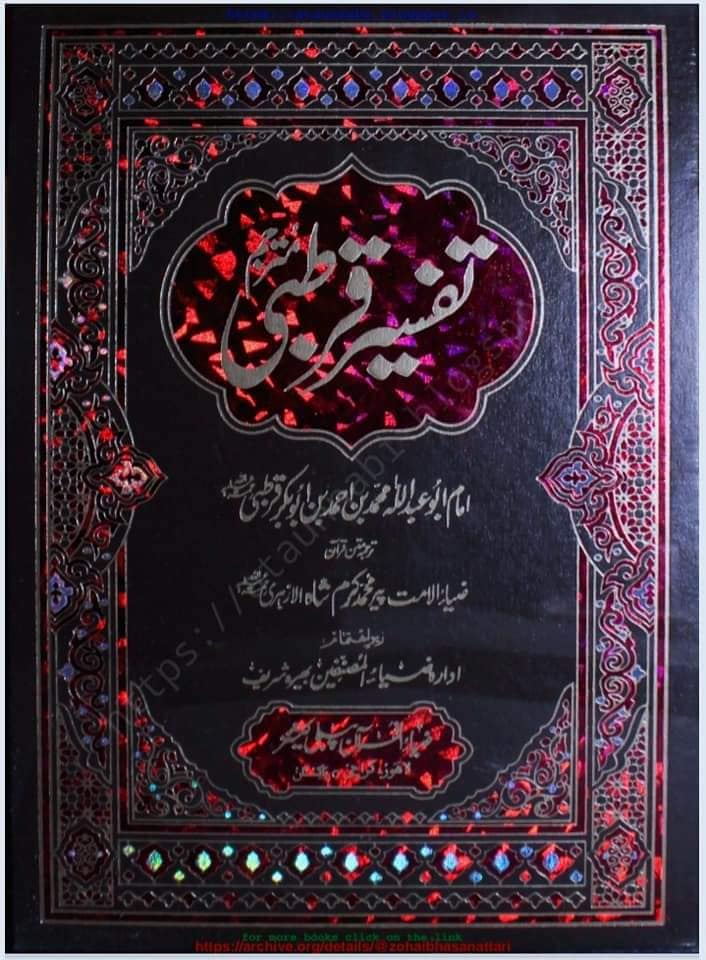 تفسیر قرطبی مترجم
امام ابو عبداللہ محمد بن احمد بن ابوبکر قرطبی
ترجمہ متن قرآن
ضیاء الامت پیر محمد کرم شاہ الازہری
زیر اہتمام
ادارہ ضیاء المصنفین بھیرہ شریف
ضیاء القرآن پبلی کیشنز
لاہور، کراچی، پاکستان
for more books click on the link
https://archive.org/details/@zohaibhasanattari